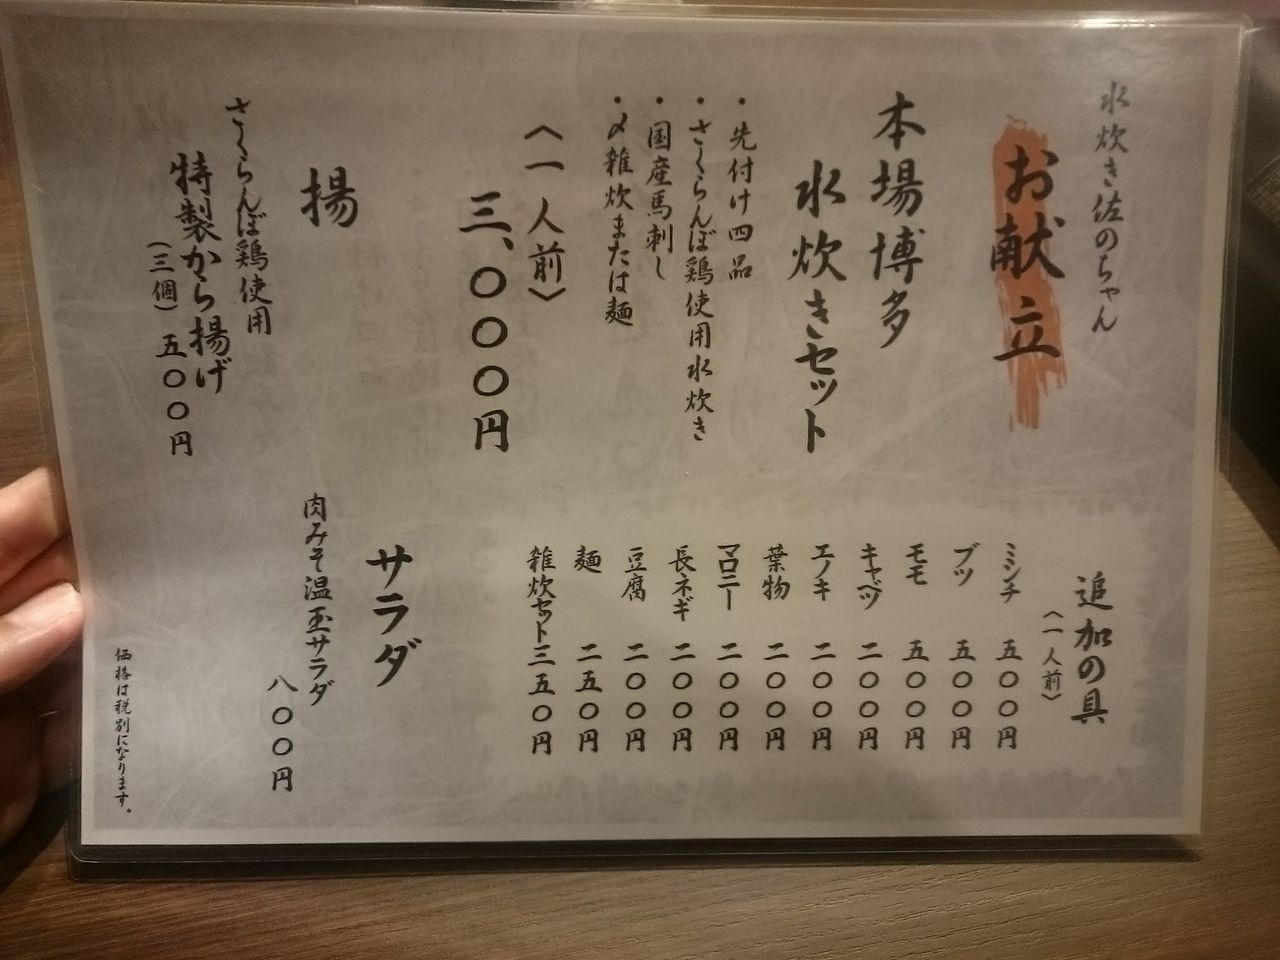 水炊き佐のちゃん
お献立
本場博多
水炊きセット
・先付け四品
・さくらんぼ鶏使用水炊き
・国産馬刺し
・〆雑炊または麺
〈一人前〉
三、〇〇〇円
揚
さくらんぼ鶏使用
特製から揚げ
（三個）五〇〇円
追加の具
〈一人前〉
ミンチ 五〇〇円
ブツ 五〇〇円
モモ 五〇〇円
キャベツ 二〇〇円
エノキ 二〇〇円
葉物 二〇〇円
マロニー 二〇〇円
長ネギ 二〇〇円
豆腐 二〇〇円
麺 二五〇円
雑炊セット 三五〇円
サラダ
肉みそ温玉サラダ
八〇〇円
価格は税別になります。